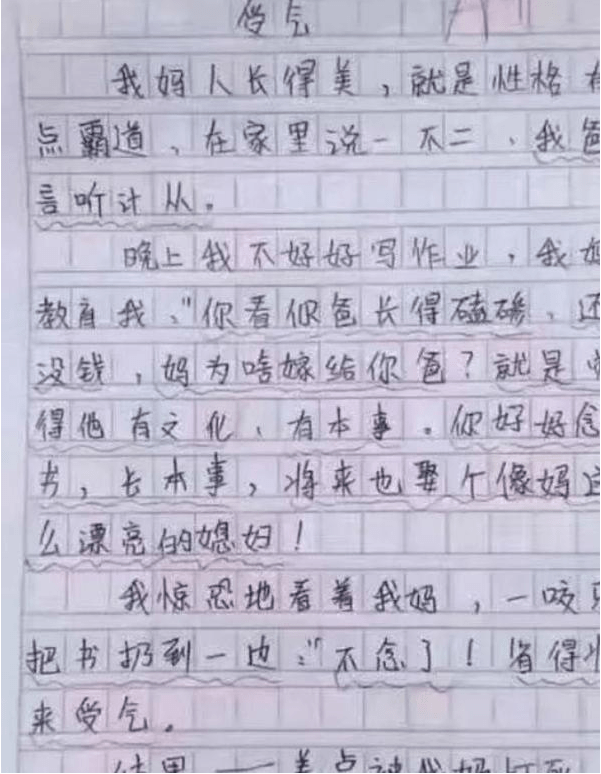 受气
我妈人长得美，就是性格有
点霸道，在家里说一不二，我爸
言听计从。
晚上我不好好写作业，我妈
教育我："你看你爸长得磕碜，还
没钱，妈为啥嫁给你爸？就是觉
得他有文化，有本事。你好好念
书，长本事，将来也娶个像妈这
么漂亮的媳妇！
我惊恐地看着我妈，一咬牙
把书扔到一边："不念了！省得将
来受气。
结果——差点被我妈打死